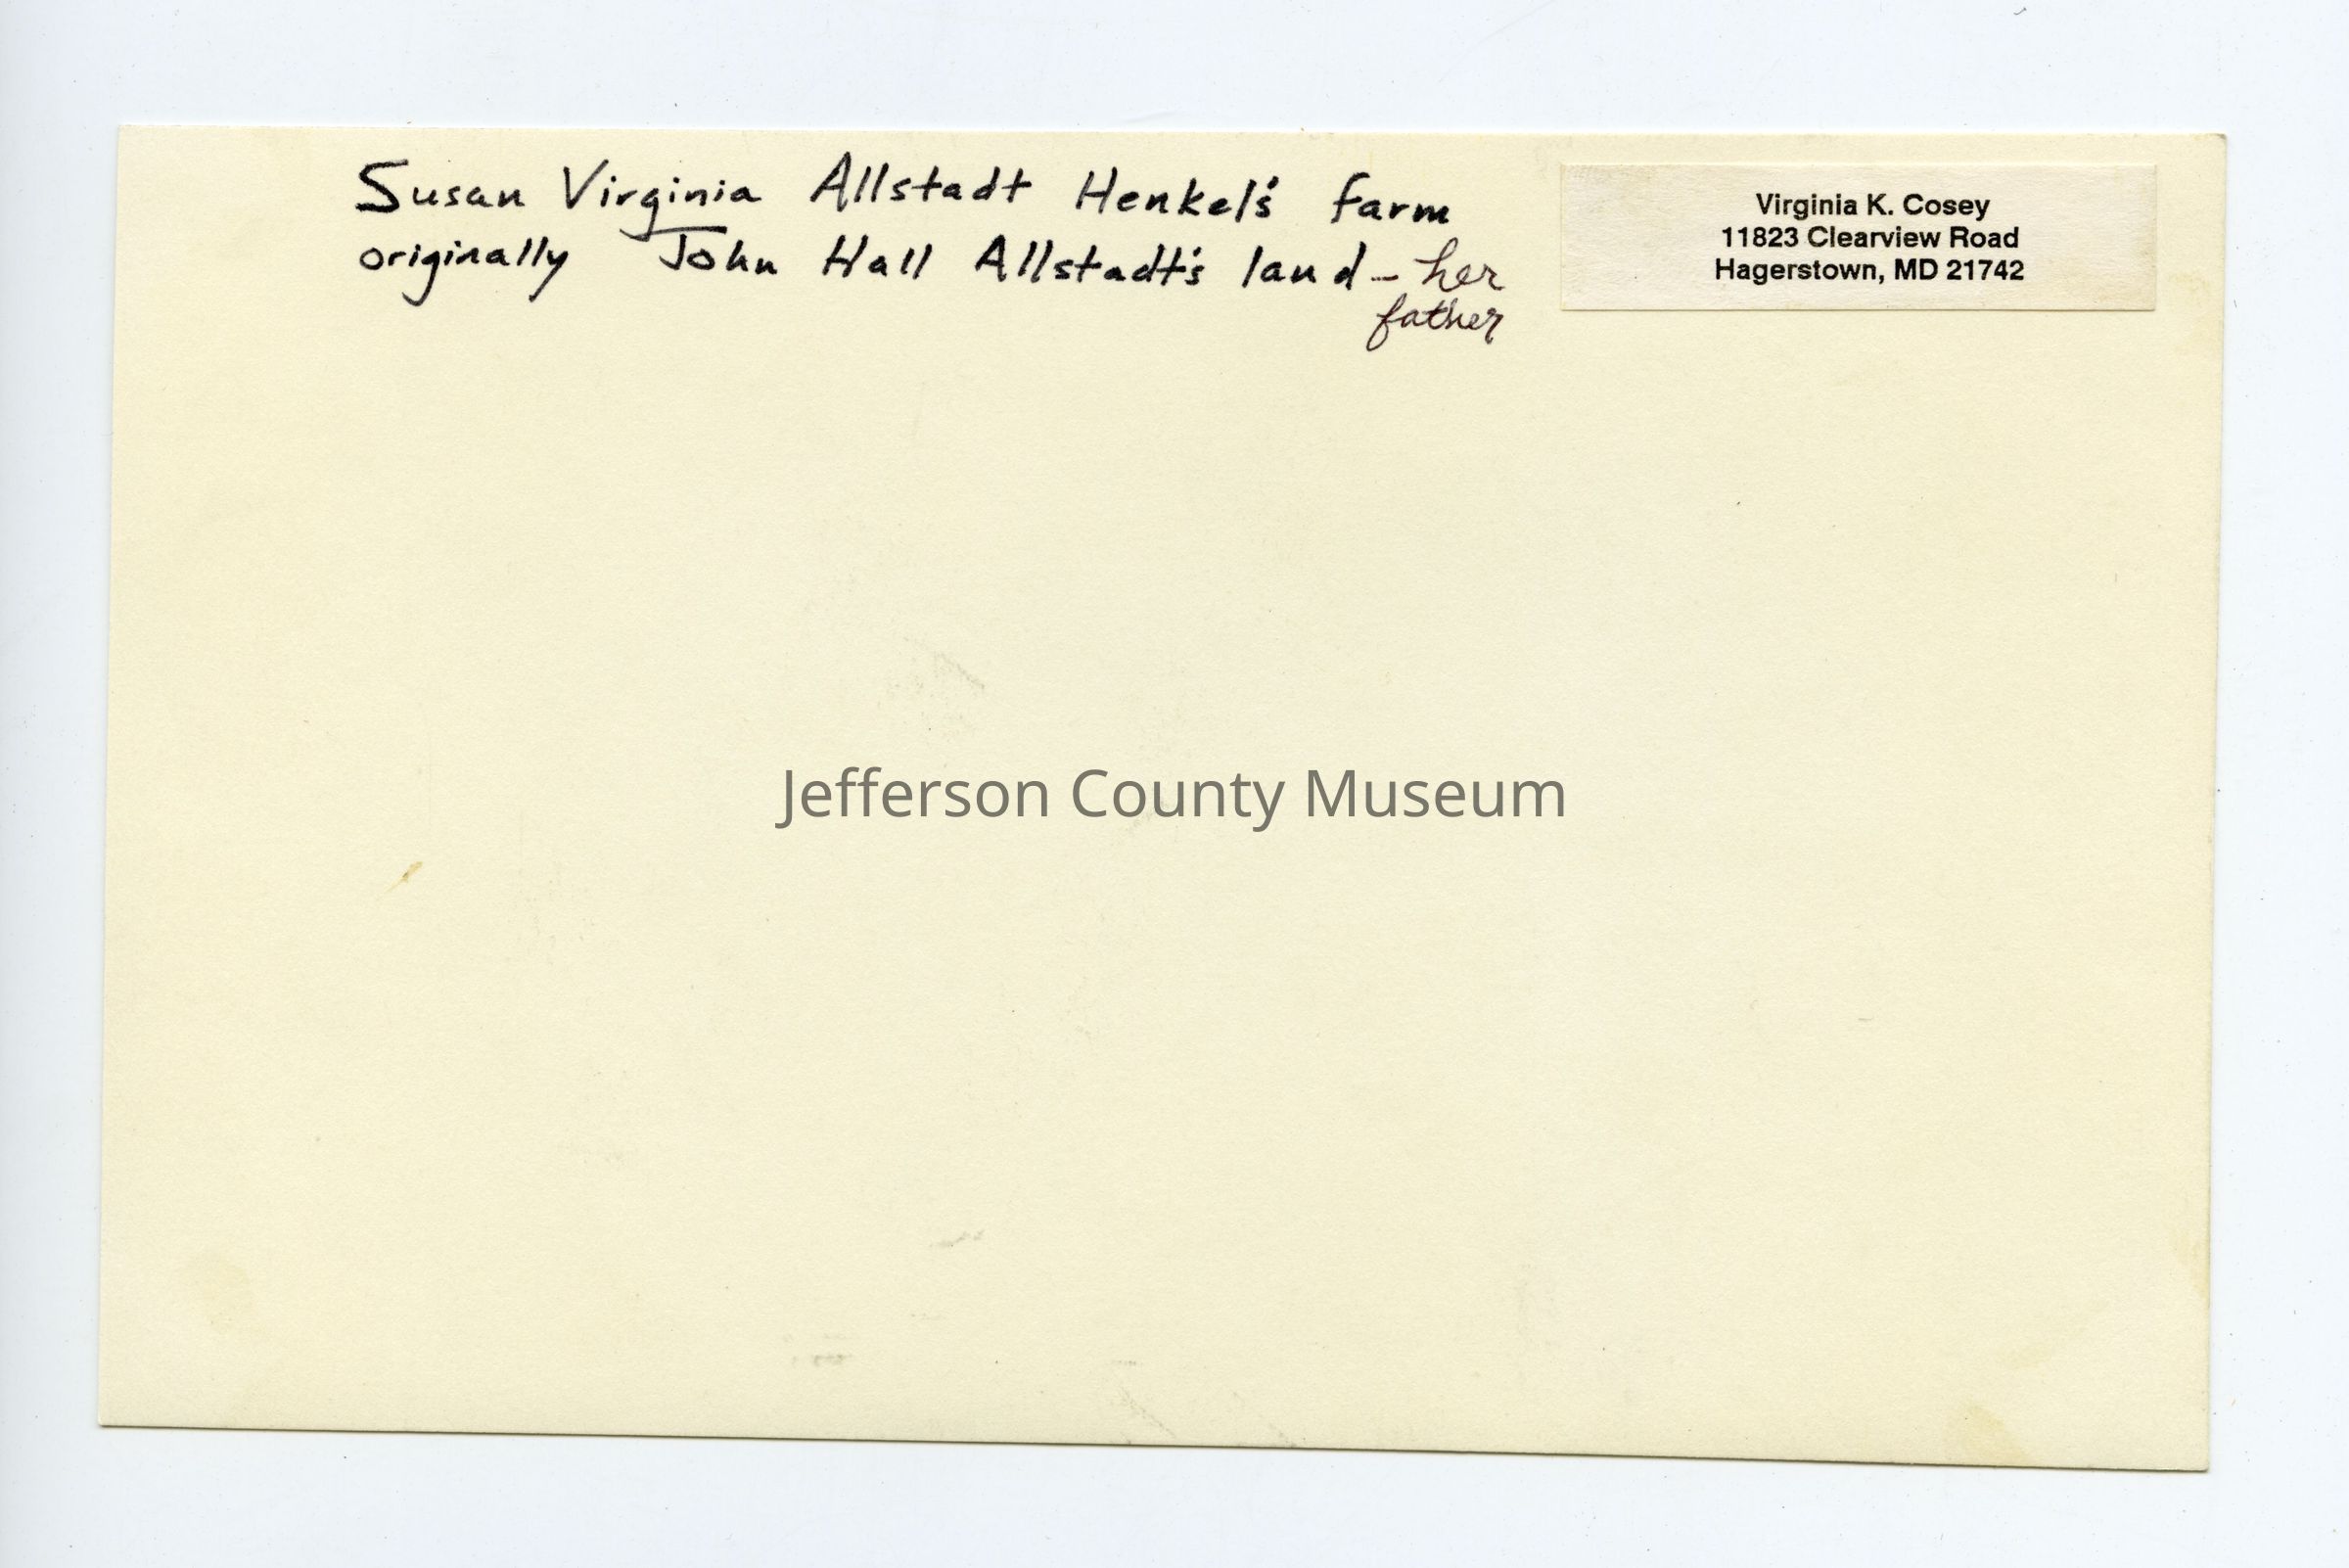 Susan Virginia Allstadt Henkel's farm
originally John Hall Allstadt's land - her
father
Virginia K. Cosey
11823 Clearview Road
Hagerstown, MD 21742
Jefferson County Museum